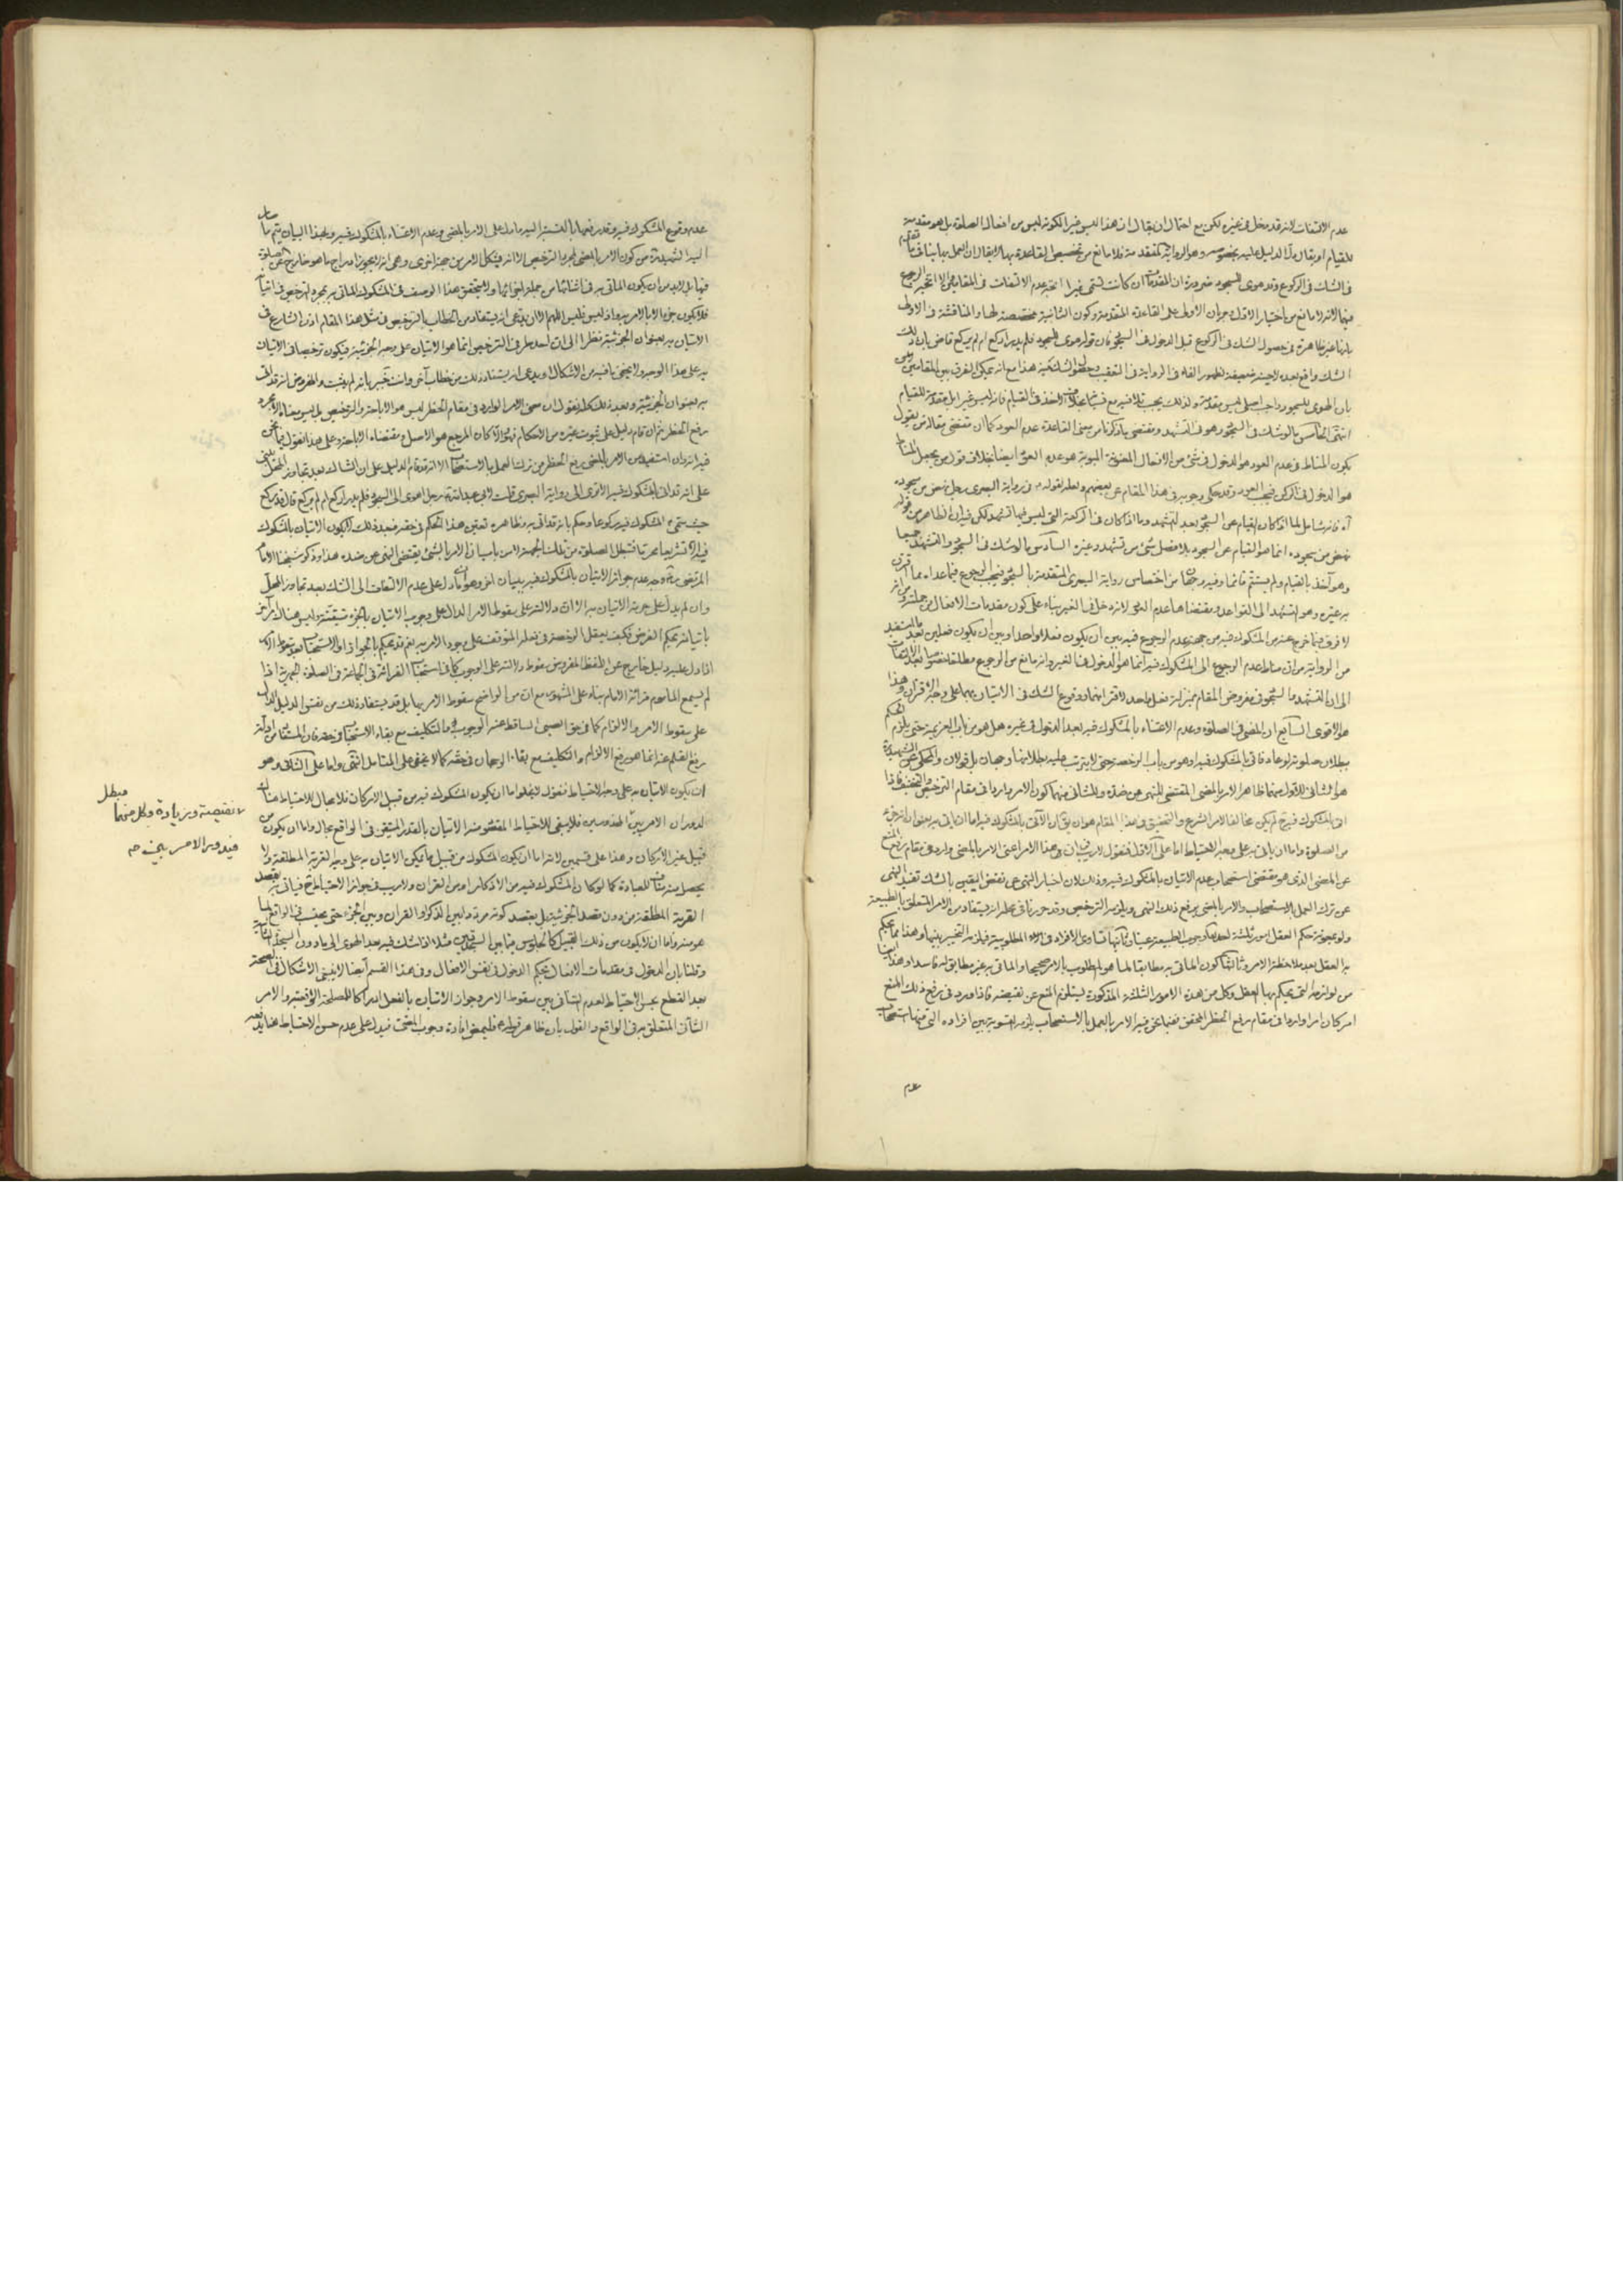 عدم الالتفات لانه قد دخل في غيره لكن مع احتمال ان يقال ان هذا ليس غيرا لكونه ليس من افعال الصلوة بل هو مقدمة
للقيام او يقال دل الدليل عليه بخصوصه وهو الرواية المتقدمة فلا مانع من تخصيص القاعدة بها لا يقال ان العمل بها ينافي ما تقدم
في الشك في الركوع وقد هوى للسجود ضرورة ان المقدمات ان كانت تسمى غيرا اتجه عدم الالتفات في المقامين والا اتجه الرجوع
فيهما لانه لا مانع من اختيار الاول وجريان الاولى على القاعدة المتقدمة وكون الثانية مخصصة لها والمناقشة في الاولى
بانها غير ظاهرة في حصول الشك في الركوع قبل الدخول في السجود فان قوله هوى للسجود فلم يدر اركع ام لم يركع قاض بان ذلك
الشك واقع بعده لا حينه ضعيفة لظهور الفاء في الرواية في التعقيب هذا مع انه يمكن الفرق بين المقامين
بان الهوى للسجود واجب اصلي ليس مقدمة ولذلك يجب بخلاف الاخذ في القيام فانه ليس غيرا بل مقدمة للقيام
انتهى الخامس لو شك في السجود وهو في التشهد ومقتضى ما ذكرنا من معنى القاعدة عدم العود كما ان مقتضى مقالة من يقول
يكون المناط في عدم العود هو الدخول في شئ من الافعال المعنونة المبوبة هو عدم العود ايضا بخلاف قول من يجعل المناط
هو الدخول في الركن فيجب العود وقد حكى وجوبه في هذا المقام عن بعضهم ولعله لقوله في رواية البصري رجل نهض من سجوده
آه فانه شامل لما اذا كان القيام عن السجود بعد التشهد وما اذا كان في الركعة التي ليس فيها تشهد لكن فيه ان الظاهر من قوله
نهض من سجوده انما هو القيام عن السجود بلا فصل شئ من تشهد وغيره السادس لو شك في السجود والتشهد جميعا
وهو آخذ بالقيام ولم يستتم قائما وفيه وجهان من اختصاص رواية البصري المتقدمة بالسجود فيجب الرجوع فيما عداه مما اقترن
به غيره وهو التشهد الى القواعد ومقتضاها عدم العود لانه دخل في الغير بناء على كون مقدمات الافعال من جملته ومن انه
لا فرق فيما خرج عنه من المشكوك فيه من جهة عدم الرجوع فيه بين ان يكون فعلا واحدا وبين ان يكون فعلين
من الرواية من ان مناط عدم الرجوع الى المشكوك فيه انما هو الدخول في الغير وانه مانع من الرجوع مطلقا
الى ان التشهد والسجود في مفروض المقام بمنزلة فعل واحد لاقترانهما ووقوع الشك في الاتيان بهما على وجه الاقتران وهذا
هو الاقوى السابع ان المضي في الصلوة وعدم الاعتناء بالمشكوك فيه بعد الدخول في غيره هل هو من باب العزيمة حتى يلزم الحكم
ببطلان صلوته لو عاد فاتى بالمشكوك فيه او هو من باب الرخصة حتى لا يترتب عليه بطلانها وجهان بل قولان والمحكي عن الشهيد
هو الثاني للاول منهما ظاهر الامر بالمضي المقتضي للنهي عن ضده والثاني منهما كون الامر واردا في مقام الترخيص والتخفيف فاذا
اتى بالمشكوك فيه لم يكن مخالفا لامر الشرع والتحقيق في هذا المقام هو ان يقال ان الآتي بالمشكوك فيه اما ان ياتي به بعنوان انه جزء
من الصلوة واما ان ياتي به على وجه الاحتياط اما على الاول فنقول لا ريب ان في هذا الامر اعني الامر بالمضي وارد في مقام رفع المنع
عن المضي الذي هو مقتضى استصحاب عدم الاتيان بالمشكوك فيه وذلك لان اخبار النهي عن نقض اليقين بالشك تفيد النهي
عن ترك العمل بالاستصحاب والامر بالمضي يرفع ذلك النهي ويلزمه الترخيص وقد حررنا في محله انه يستفاد من الامر المتعلق بالطبيعة
ولو بمعونة حكم العقل امور ثلثة احدها وجوب الطبيعة عينا وثانيها تساوي الافراد في المطلوبية فيلزمه التخيير بينها وهذا مما يحكم
به العقل بعد ملاحظة الامر وثالثها كون الماتي به مطابقا لما هو المطلوب بالامر صحيحا والماتي به غير مطابق له فاسدا وهذا ايضا
من لوازمه التي يحكم بها العقل وكل من هذه الامور الثلثة المذكورة يستلزم المنع عن نقيضه فاذا ورد في رفع ذلك المنع
امر كان امرا واردا في مقام رفع الحظر المحقق ففيما نحن فيه الامر بالعمل بالاستصحاب يلزمه التسوية بين افراده التي منها استصحاب
عدم
عدم وقوع المشكوك فيه وقد رفعها بالنسبة اليه ما دل على الامر بالمضي وعدم الاعتناء بالمشكوك فيه وبهذا البيان يتم ما صار
اليه الشهيد من كون الامر بالمضي لمجرد الترخيص الا انه يشكل الامر من جهة اخرى وهي انه لا يجوز ادراج ما هو خارج عن الصلوة
فيها بل لا بد من ان يكون الماتي به في اثنائها من جملة اجزائها ولا يتحقق هذا الوصف في المشكوك الماتي به بمجرد الترخيص في اتيانه
فلا يكون جزء الا بالامر به واذ ليس فليس اللهم الا ان يدعى انه يستفاد من الخطاب بالترخيص في مثل هذا المقام اذن الشارع في
الاتيان به بعنوان الجزئية نظرا الى ان احد طرفي الترخيص انما هو الاتيان على وجه الجزئية فيكون ترخيصا في الاتيان
به على هذا الوجه ولا يخفى ما فيه من الاشكال او يدعى انه يستفاد ذلك من خطاب آخر وانت خبير بانه لم يثبت والمفروض انه قد اتى
به بعنوان الجزئية وبعد ذلك كله نقول ان معنى الامر الوارد في مقام الحظر ليس هو الاباحة والترخيص بل ليس معناه الا مجرد
رفع الحظر ثم ان قام دليل على ثبوت غيره من الاحكام فهو والا كان المرجع هو الاصل ومقتضاه الاباحة وعلى هذا نقول فيما نحن
فيه انه وان استفيد من الامر بالمضي رفع الحظر من ترك العمل بالاستصحاب الا انه قد قام الدليل على ان الشاك بعد تجاوز المحل يبنى
على انه قد اتى بالمشكوك فيه الاترى الى رواية البصري قلت لابي عبد الله رجل اهوى الى السجود فلم يدر اركع ام لم يركع قال قد ركع
حيث سمى المشكوك فيه ركوعا وحكم بانه قد اتى به وظاهره تعيين هذا الحكم في حقه فبعد ذلك لا يكون الاتيان بالمشكوك
فيه الا تشريعا محرما فتبطل الصلوة من تلك الجهة لا من باب ان الامر بالشئ يقتضي النهي عن ضده هذا وذكر شيخنا الامام
المرتضى وجه عدم جواز الاتيان بالمشكوك فيه ببيان آخر وهو ان ما دل على عدم الالتفات الى الشك بعد تجاوز المحل
وان لم يدل على حرمة الاتيان به الا ان دلالته على سقوط الامر الدال على وجوب الاتيان بالجزء متيقنة وليس هناك امر آخر
باتيانه بحكم الفرض فكيف يعقل الرخصة في فعله الموقوف على وجود الامر به نعم قد يحكم بالجواز او الاستحباب بعد سقوط الامر
اذا دل عليه دليل خارج عن اللفظ المفروض سقوط دلالته على الوجوب كما في استحباب القرائة في الجماعة في الصلوة الجهرية اذا
لم يسمع الماموم قرائة الامام بناء على المشهور مع ان من الواضح سقوط الامر بها بل قد يستفاد ذلك من نفس الدليل الدال
على سقوط الامر والالزام كما في حق الصبي الساقط عنه الوجوب والتكليف مع بقاء الاستحباب في حقه فان المستفاد من ادلة
رفع القلم عنه انما هو رفع الالزام والتكليف مع بقاء الرجحان في حقه كما لا يخفى على المتامل انتهى واما على الثاني وهو
ان يكون الاتيان به على وجه الاحتياط فنقول لا يخلو اما ان يكون المشكوك فيه من قبيل الاركان فلا مجال للاحتياط هناك
لدوران الامر بين المحذورين فلا يبقى للاحتياط المقصود منه الاتيان بالقدر المتيقن في الواقع مجال واما ان يكون من
قبيل غير الاركان وهذا على قسمين لانه اما ان يكون المشكوك من قبيل ما يمكن الاتيان به على وجه القربة المطلقة ولا
يحصل منه مناف للعبادة كما لو كان المشكوك فيه من الاذكار او من القران ولا ريب في جواز الاحتياط ح فياتي به بقصد
القربة المطلقة من دون قصد الجزئية بل بقصد كونه مرددا بين الذكر او القران وبين الجزء حتى يحتسب في الواقع لما
هو منه واما ان لا يكون من ذلك القبيل كالجلوس فيما بين السجدتين مثلا اذا شك فيه بعد الهوى الى ما دون السجدة الثانية
وقلنا بان الدخول في مقدمات الافعال بحكم الدخول في نفس الافعال وفي هذا القسم ايضا لا ينبغي الاشكال في الصحة
بعد القطع بحسن الاحتياط لعدم التنافي بين سقوط الامر وجواز الاتيان بالفعل ادراكا للمصلحة الواقعية والامر
الشاني المتعلق به في الواقع والقول بان ظاهر قوله فليمض افادة وجوب المضي فيدل على عدم حسن الاحتياط هنا يدفعه
نقيصة وزيادة وكل منهما مبطل
فيدور الامر بين